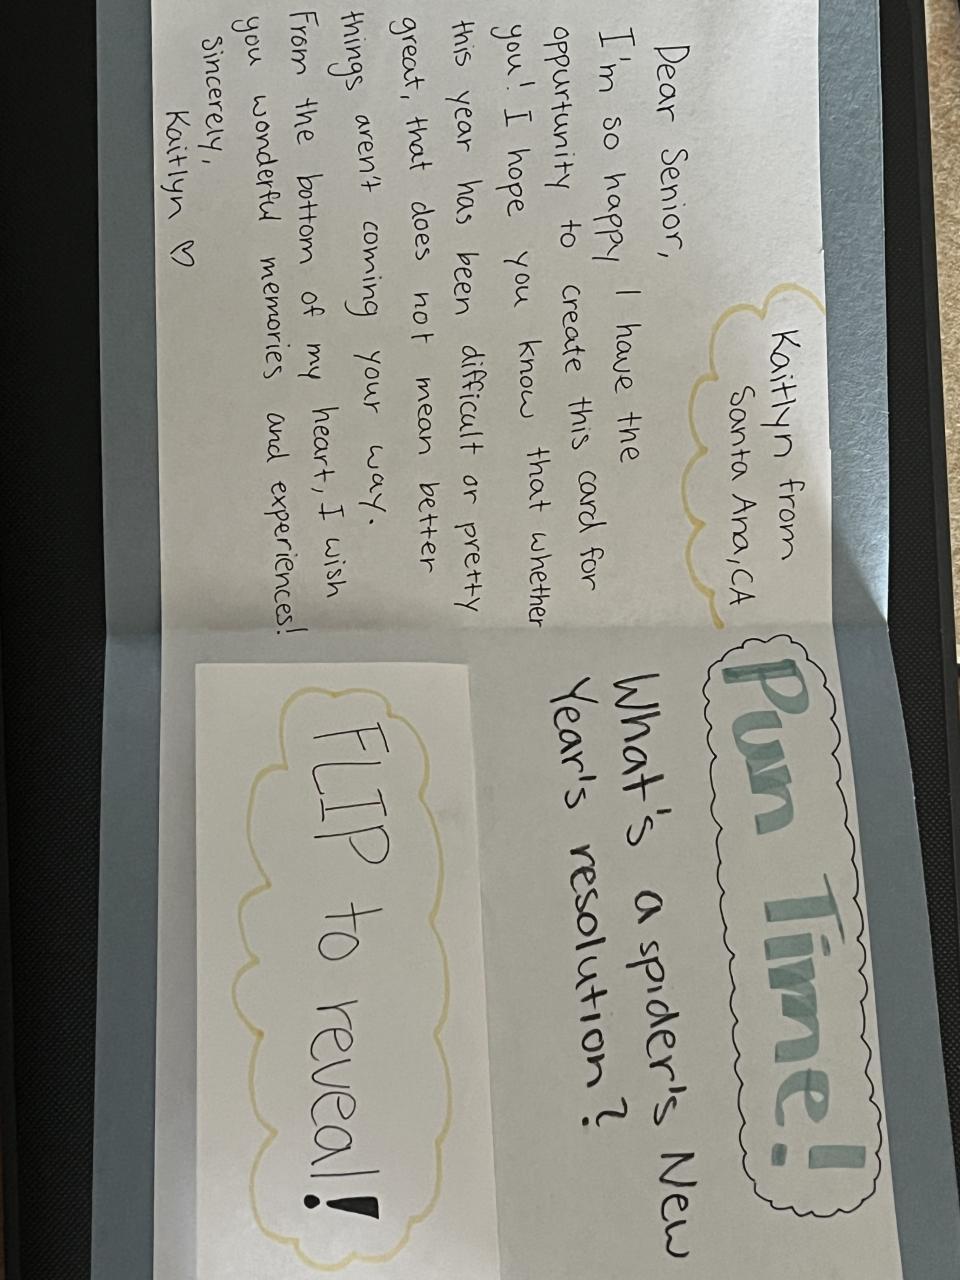 Kaitlyn from
Santa Ana, CA
Dear Senior,
I'm so happy I have the
oppurtunity to create this card for
you! I hope you know that whether
this year has been difficult or pretty
great, that does not mean better
things aren't coming your way.
From the bottom of my heart, I wish
you wonderful memories and experiences!
sincerely,
Kaitlyn ♡
Pun Time!
What's a spider's New
Year's resolution?
FLIP to reveal!